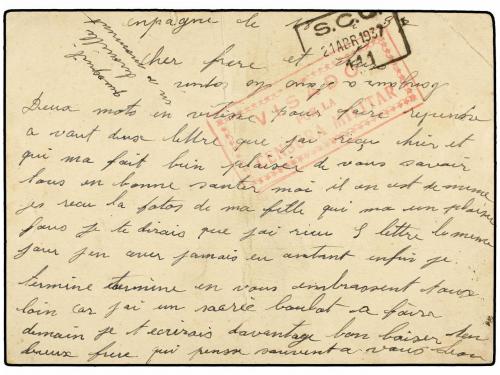 enpagne le
S.C.C.
21 ABR 1937
111
Cher frere et
bonjour a
VISADO
POR LA
CENSURA MILITAR
Deux mots en vitesse pour faire repondre
a vaut deux lettre que j'ai reçu hier et
qui ma fait bien plaisir de vous savoir
tous en bonne santer moi il en est de meme
jes recu la fotos de ma fille qui ma un plaisir
fous je te dirais que j'ai ricu 5 lettre le meme
jour j'en aver jamais eu autant enfin je
termine termine en vous embrassent tous
loin car j'ai un sacrée boulot a faire
demain je t ecrirais davantage bon baiser ton
frere qui pense souvent a vous